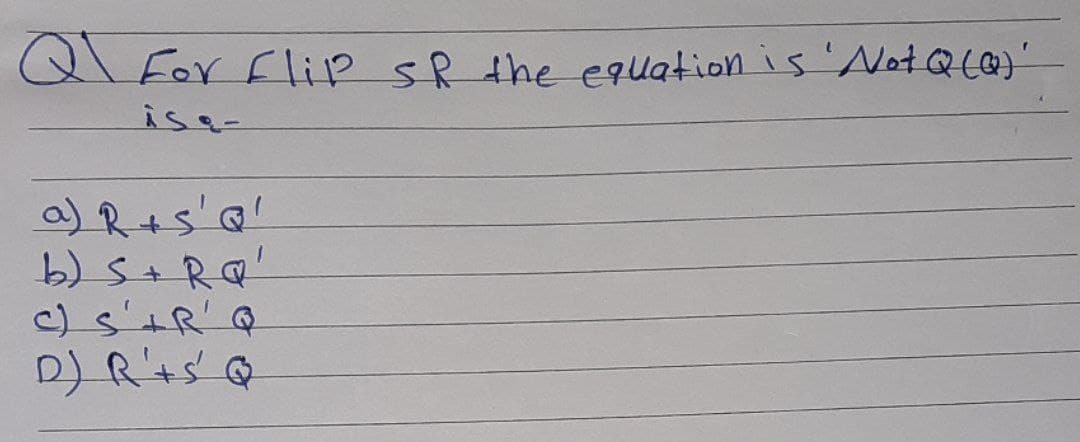 Q1 For Flip SR the equation is 'Not Q(Q)'
is:-
a) R + S' Q'
b) S + R Q'
c) S' + R' Q
D) R' + S' Q